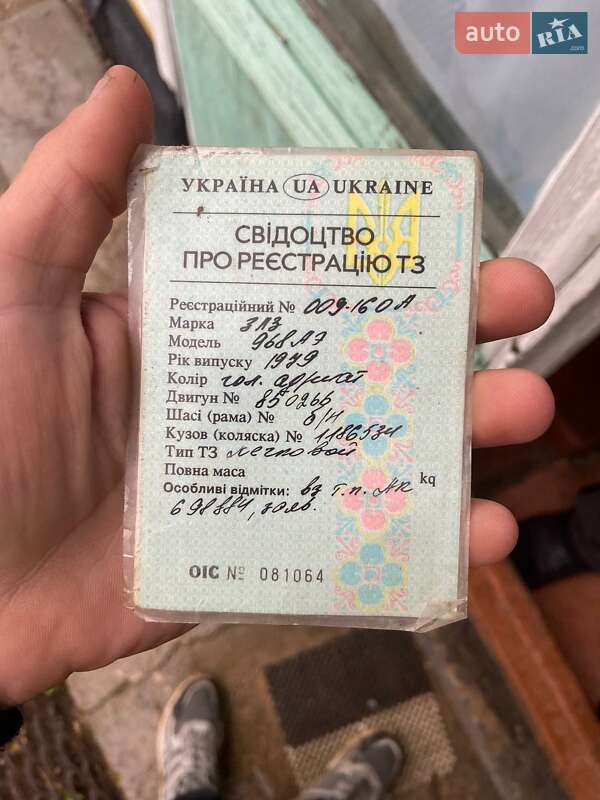 auto RIA.com
УКРАЇНА UA UKRAINE
СВІДОЦТВО
ПРО РЕЄСТРАЦІЮ ТЗ
Реєстраційний № 009-160А
Марка ЗАЗ
Модель 968АЭ
Рік випуску 1979
Колір гол.
Двигун № 850266
Шасі (рама) № б/н
Кузов (коляска) № 1186534
Тип ТЗ легковой
Повна маса kq
Особливі відмітки: вз т.п. АК
698884,
ОІС № 081064